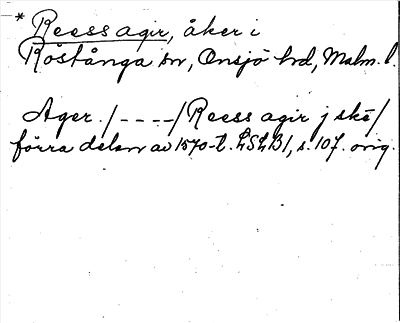 * Reess agir, åker i
Röstånga sn, Onsjö hd, Malm. l.
Ager. /----/ Reess agir j skē/
förra delen av 1570-t. LSLB1, s. 107. orig.